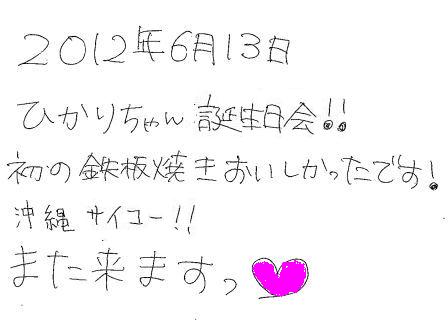 2012年6月13日
ひかりちゃん誕生日会!!
初の鉄板焼きおいしかったです!
沖縄サイコー!!
また来ますっ